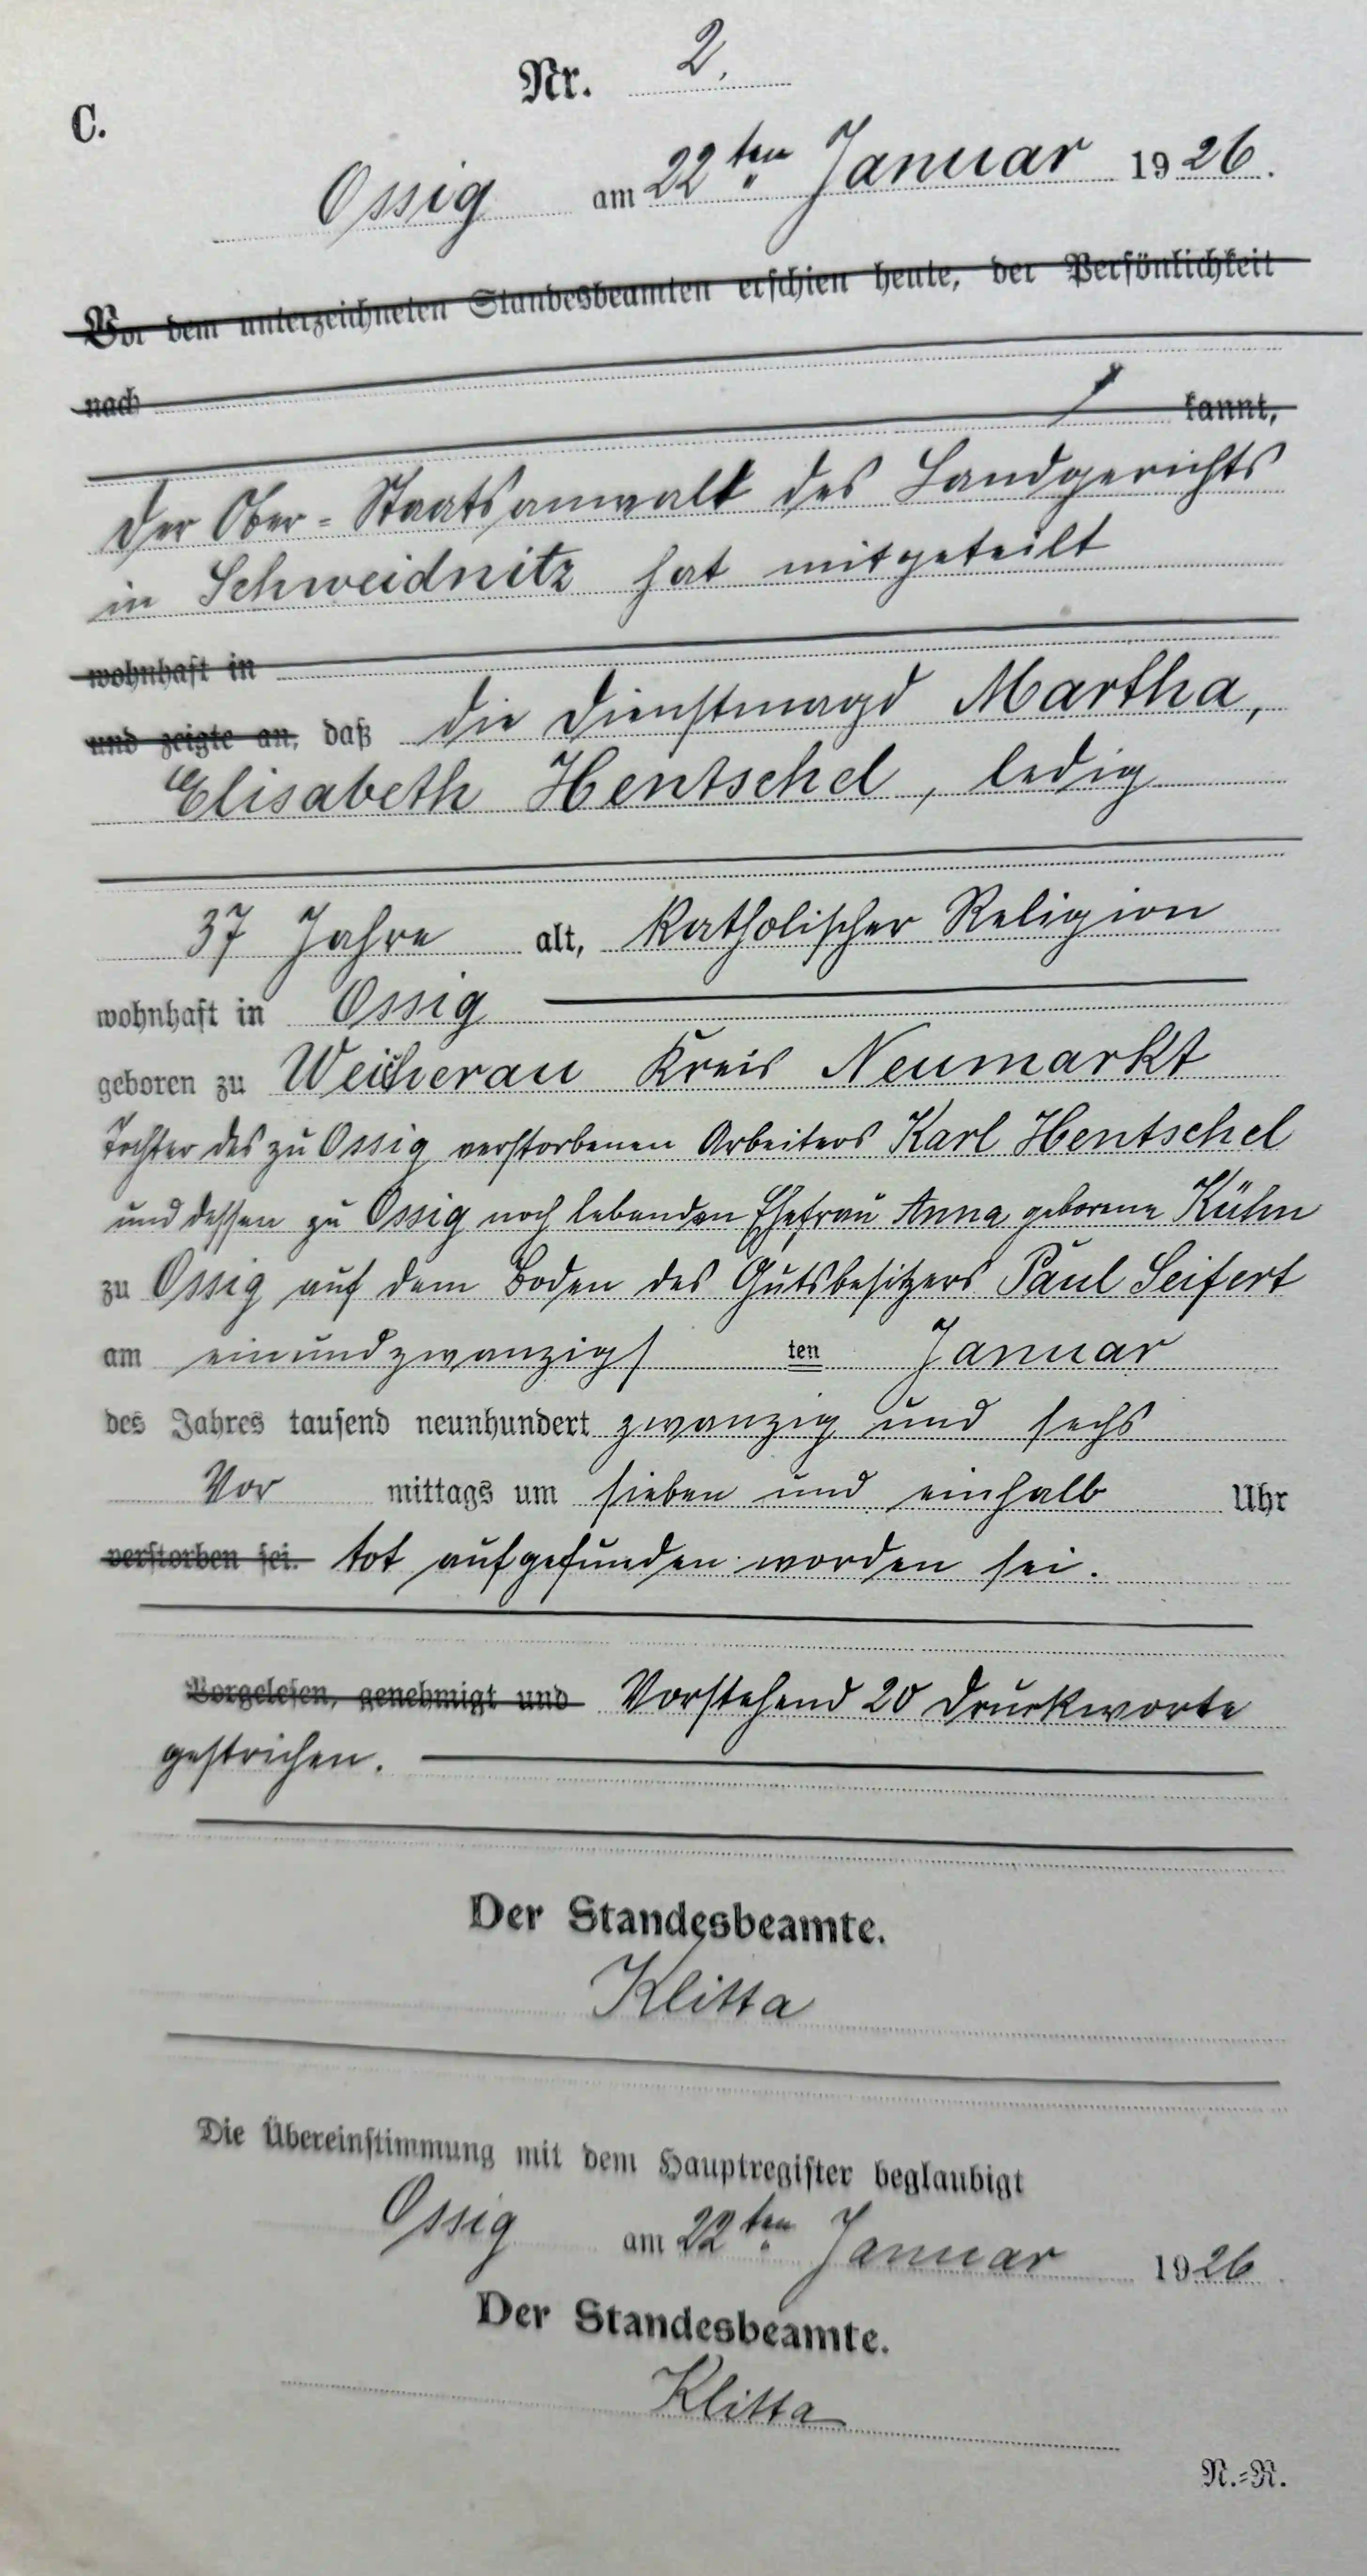 Nr. 2.
C.
Ossig am 22ten Januar 1926.
Vor dem unterzeichneten Standesbeamten erschien heute, der Persönlichkeit
nach
kannt,
Der Ober-Staatsanwalt des Landgerichts
in Schweidnitz hat mitgeteilt
wohnhaft in
und zeigte an, daß die Dienstmagd Martha,
Elisabeth Hentschel, ledig
37 Jahre alt, katholischer Religion
wohnhaft in Ossig
geboren zu Weicherau Kreis Neumarkt
Tochter des zu Ossig verstorbenen Arbeiters Karl Hentschel
und dessen zu Ossig noch lebenden Ehefrau Anna geborene Kühn
zu Ossig auf dem Boden des Gutsbesitzers Paul Seifert
am einundzwanzigsten Januar
des Jahres tausend neunhundert zwanzig und sechs
Vor mittags um sieben und einhalb Uhr
verstorben sei. tot aufgefunden worden sei.
Vorgelesen, genehmigt und Vorstehend 20 Druckworte
gestrichen.
Der Standesbeamte.
Klitta
Die Übereinstimmung mit dem Hauptregister beglaubigt
Ossig am 22ten Januar 1926.
Der Standesbeamte.
Klitta
N.=R.